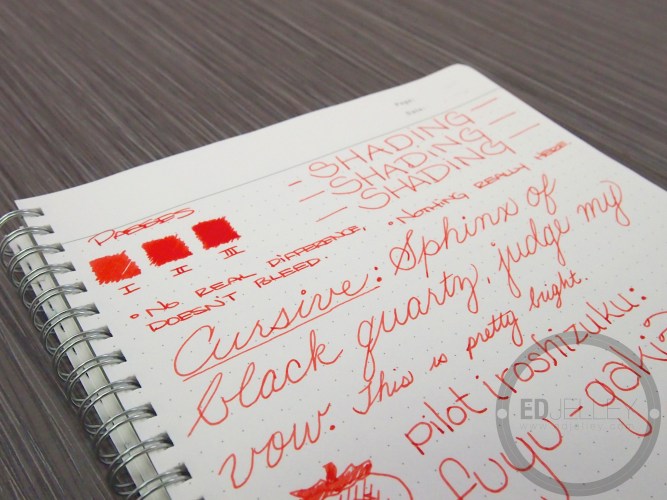 Page:
Date:
- SHADING -
- SHADING -
- SHADING -
PASSES
I II III
• NO REAL DIFFERENCE,
DOESN'T BLEED.
• NOTHING REALLY HERE.
Cursive: Sphinx of
black quartz, judge my
vow. This is pretty bright.
pilot iroshizuku:
fuyu-gaki
EDJELLEY
www.edjelley.com